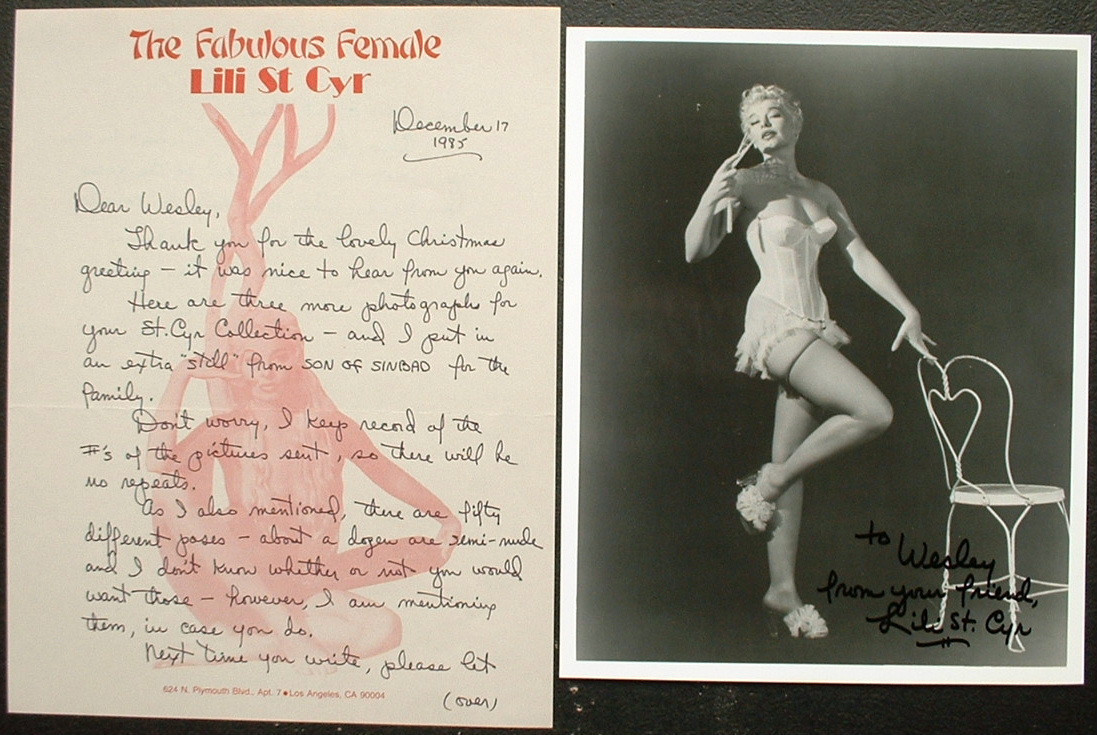 The Fabulous Female
Lili St Cyr
December 17
1985
Dear Wesley,
Thank you for the lovely Christmas
greeting – it was nice to hear from you again.
Here are three more photographs for
your St. Cyr Collection – and I put in
an extra "still" from SON OF SINBAD for the
family.
Don't worry, I keep record of the
#'s of the pictures sent, so there will be
no repeats.
As I also mentioned, there are fifty
different poses – about a dozen are semi-nude
and I don't know whether or not you would
want those – however, I am mentioning
them, in case you do.
Next time you write, please let
(over)
624 N. Plymouth Blvd., Apt. 7 • Los Angeles, CA 90004
to Wesley
from your friend,
Lili St. Cyr